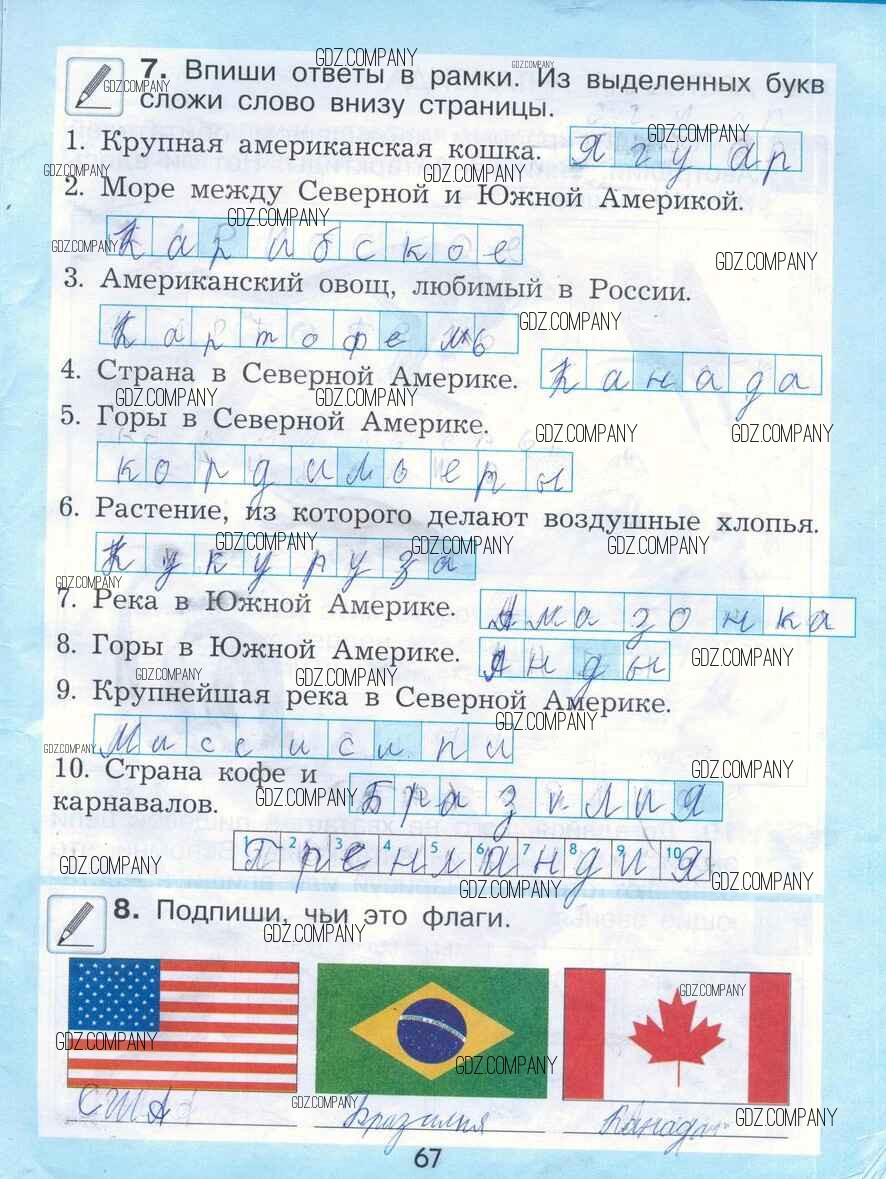 7. Впиши ответы в рамки. Из выделенных букв
сложи слово внизу страницы.
1. Крупная американская кошка. Ягуар
2. Море между Северной и Южной Америкой.
Карибское
3. Американский овощ, любимый в России.
Картофель
4. Страна в Северной Америке. Канада
5. Горы в Северной Америке.
кордильеры
6. Растение, из которого делают воздушные хлопья.
Кукуруза
7. Река в Южной Америке. Амазонка
8. Горы в Южной Америке. Анды
9. Крупнейшая река в Северной Америке.
Миссисипи
10. Страна кофе и
карнавалов. Бразилия
1 2 3 4 5 6 7 8 9 10
Гренландия
8. Подпиши, чьи это флаги.
США Бразилия Канада
67
GDZ.COMPANY